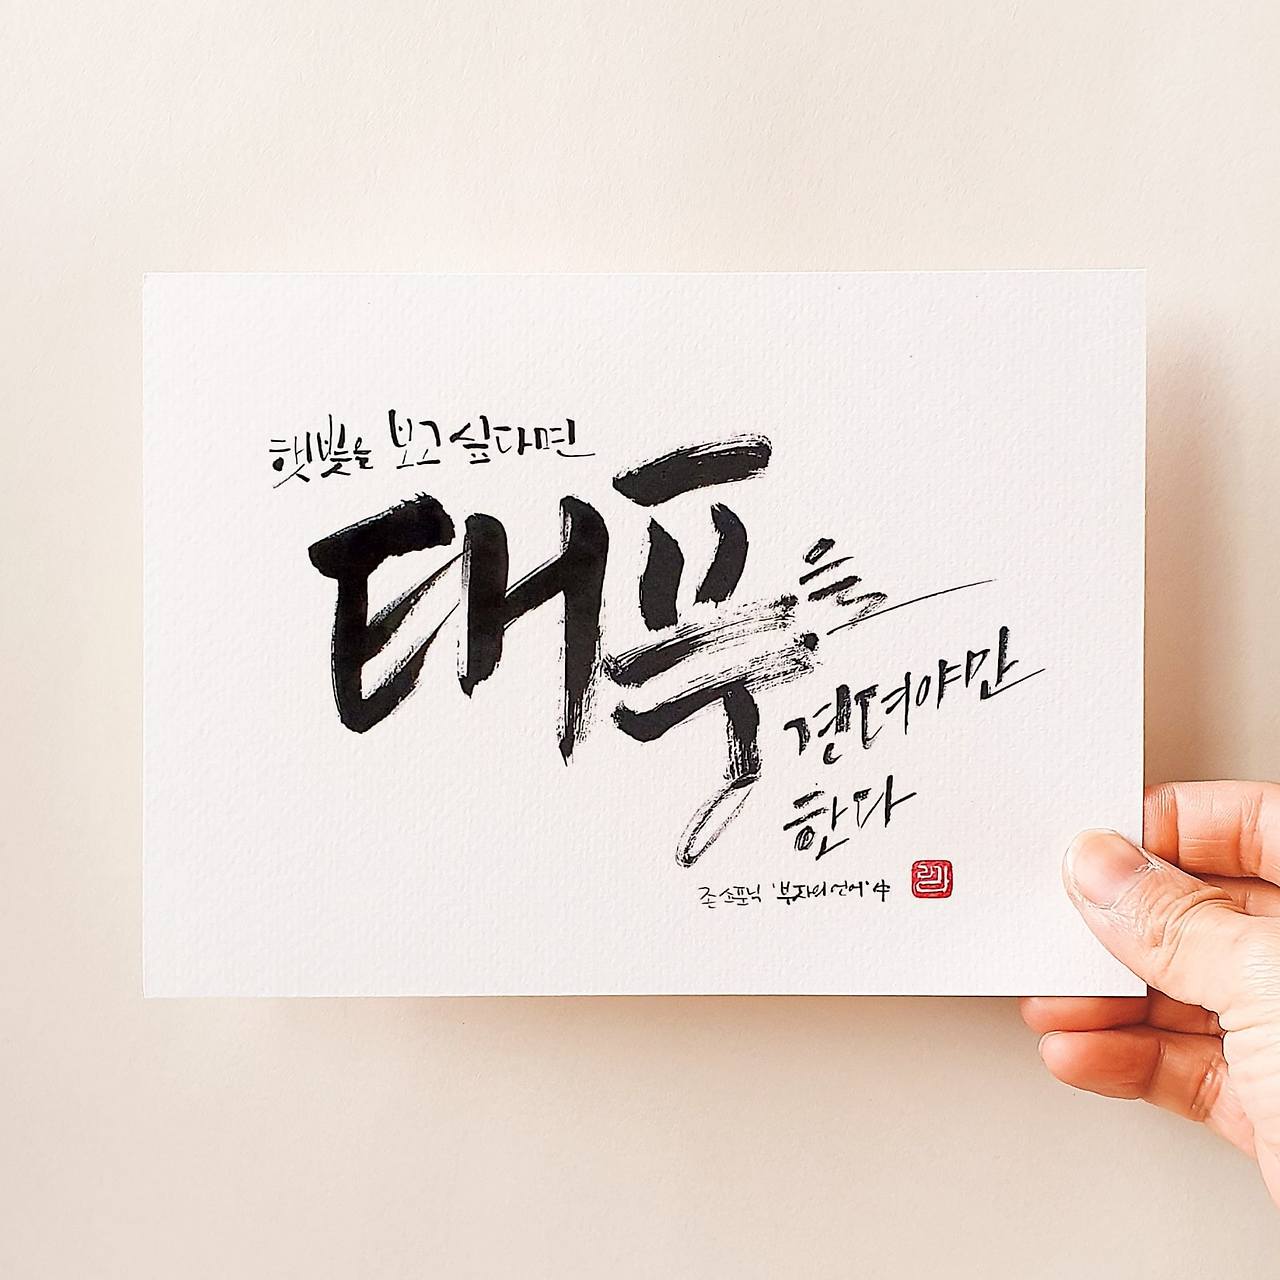 햇빛을 보고싶다면
태풍을
견뎌야만
한다
존 소포닉 '부자의 언어' 中